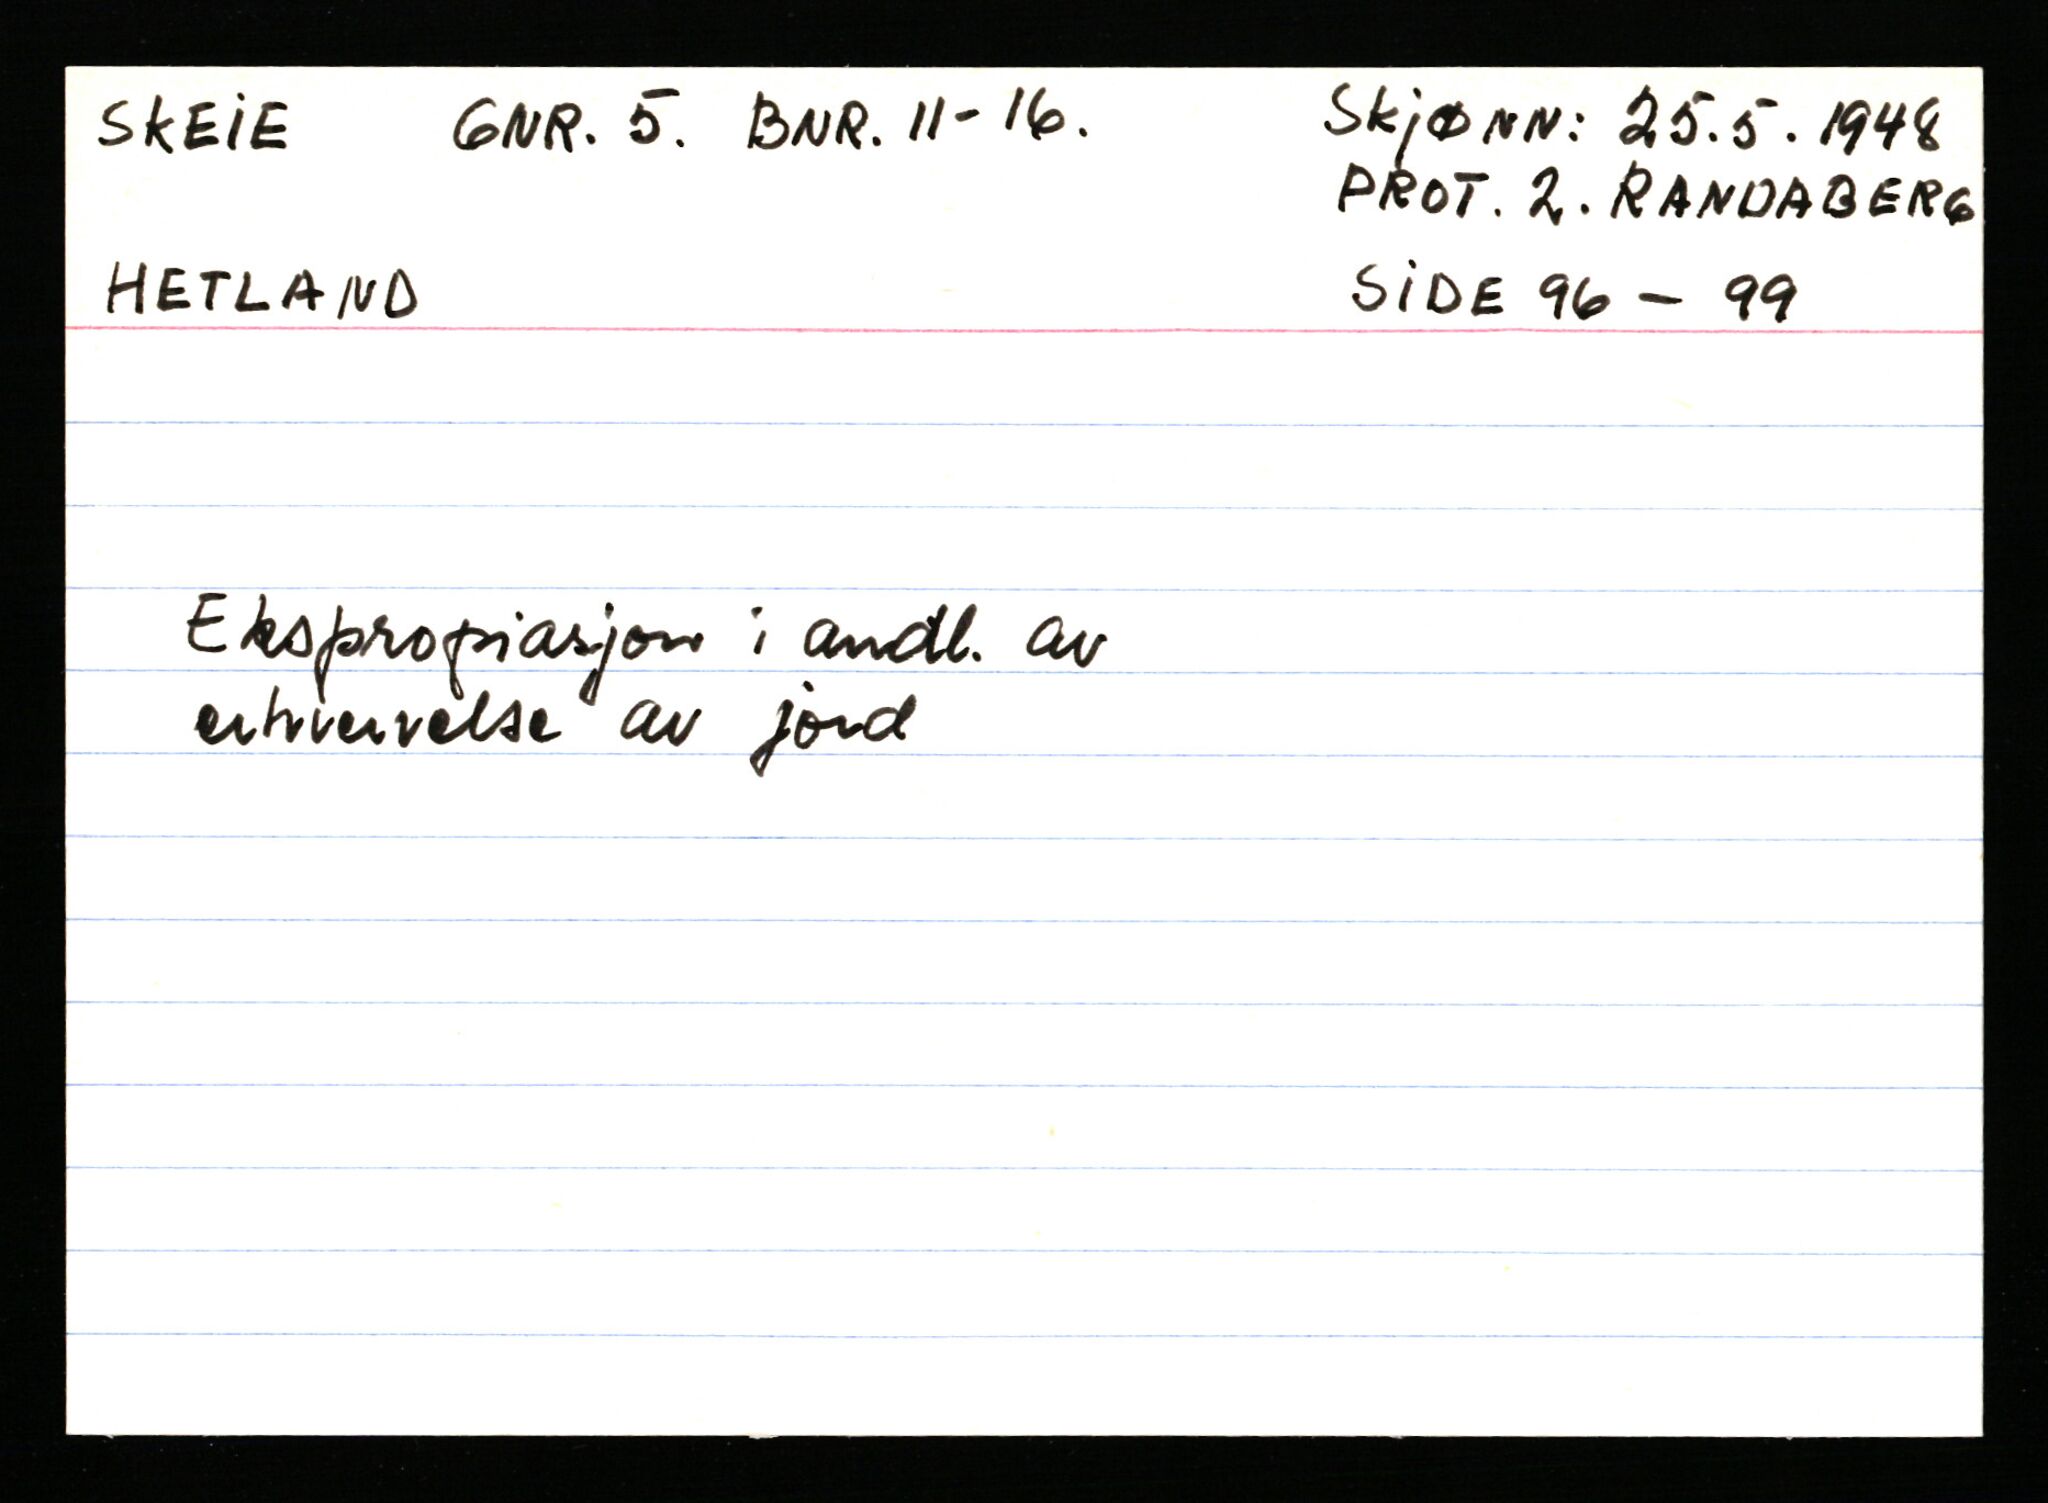 SKEIE GNR. 5. BNR. 11-16. Skjønn: 25.5.1948
PROT. 2. RANDABERG
HETLAND SIDE 96 - 99
Ekspropiasjon i andl. av
erhvervelse av jord